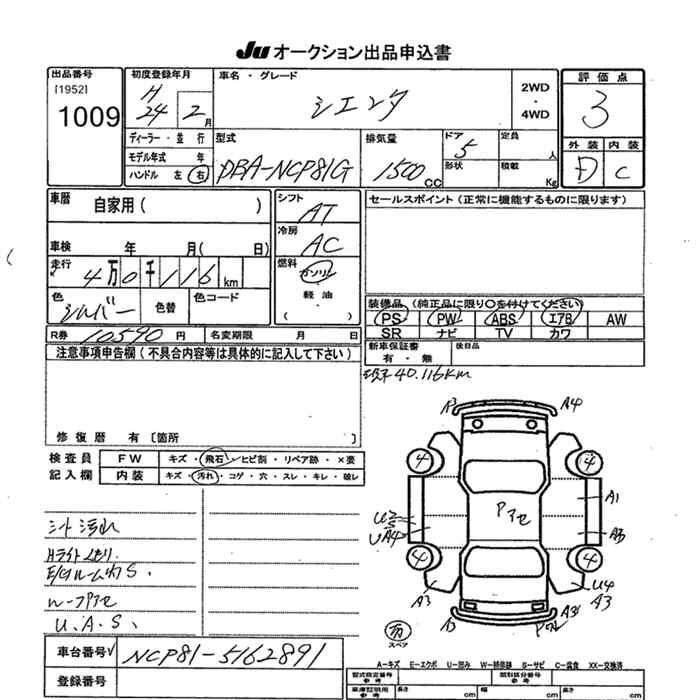 Ju オークション出品申込書
出品番号 初度登録年月 車名・グレード 評価点
[1952] 1009 H 24 2月 シエンタ 2WD・4WD 3
ディーラー・並行 型式 排気量 ドア 定員 外装 内装
モデル年式 年 DBA-NCP81G 1500cc 5 人 D C
ハンドル 左 右 形状 積載 Kg
車歴 自家用( ) シフト AT セールスポイント(正常に機能するものに限ります)
車検 年 月( 日) 冷房 AC
走行 4万0千116km 燃料 ガソリン・軽油・( )
色 シルバー 色替 色コード 装備品(純正品に限り○を付けてください)
PS PW ABS エアB AW
SR ナビ TV カワ
R券 10590円 名変期限 月 日 新車保証書 有・無 後日品
注意事項申告欄(不具合内容等は具体的に記入して下さい)
40.116KM
修復歴 有〔箇所 〕
検査員 FW キズ・飛石・ヒビ割・リペア跡・×要
記入欄 内装 キズ・汚れ・コゲ・穴・スレ・キレ・破レ
A3 A4
4 4
A1
アセ
A4 A3
4 4
A3 U4 A3
A3 A3
スペア
シート汚れ
Hライトくもり
E/gルームサS、
W-アセ
U.A.S.
車台番号 NCP81-5162891
A-キズ E-エクボ U-凹み W-補修跡 S-サビ C-腐食 XX-交換済
登録番号 型式指定番号 参考 類別区分番号 参考
車庫証明用 参考 長さ cm 幅 cm 高さ cm